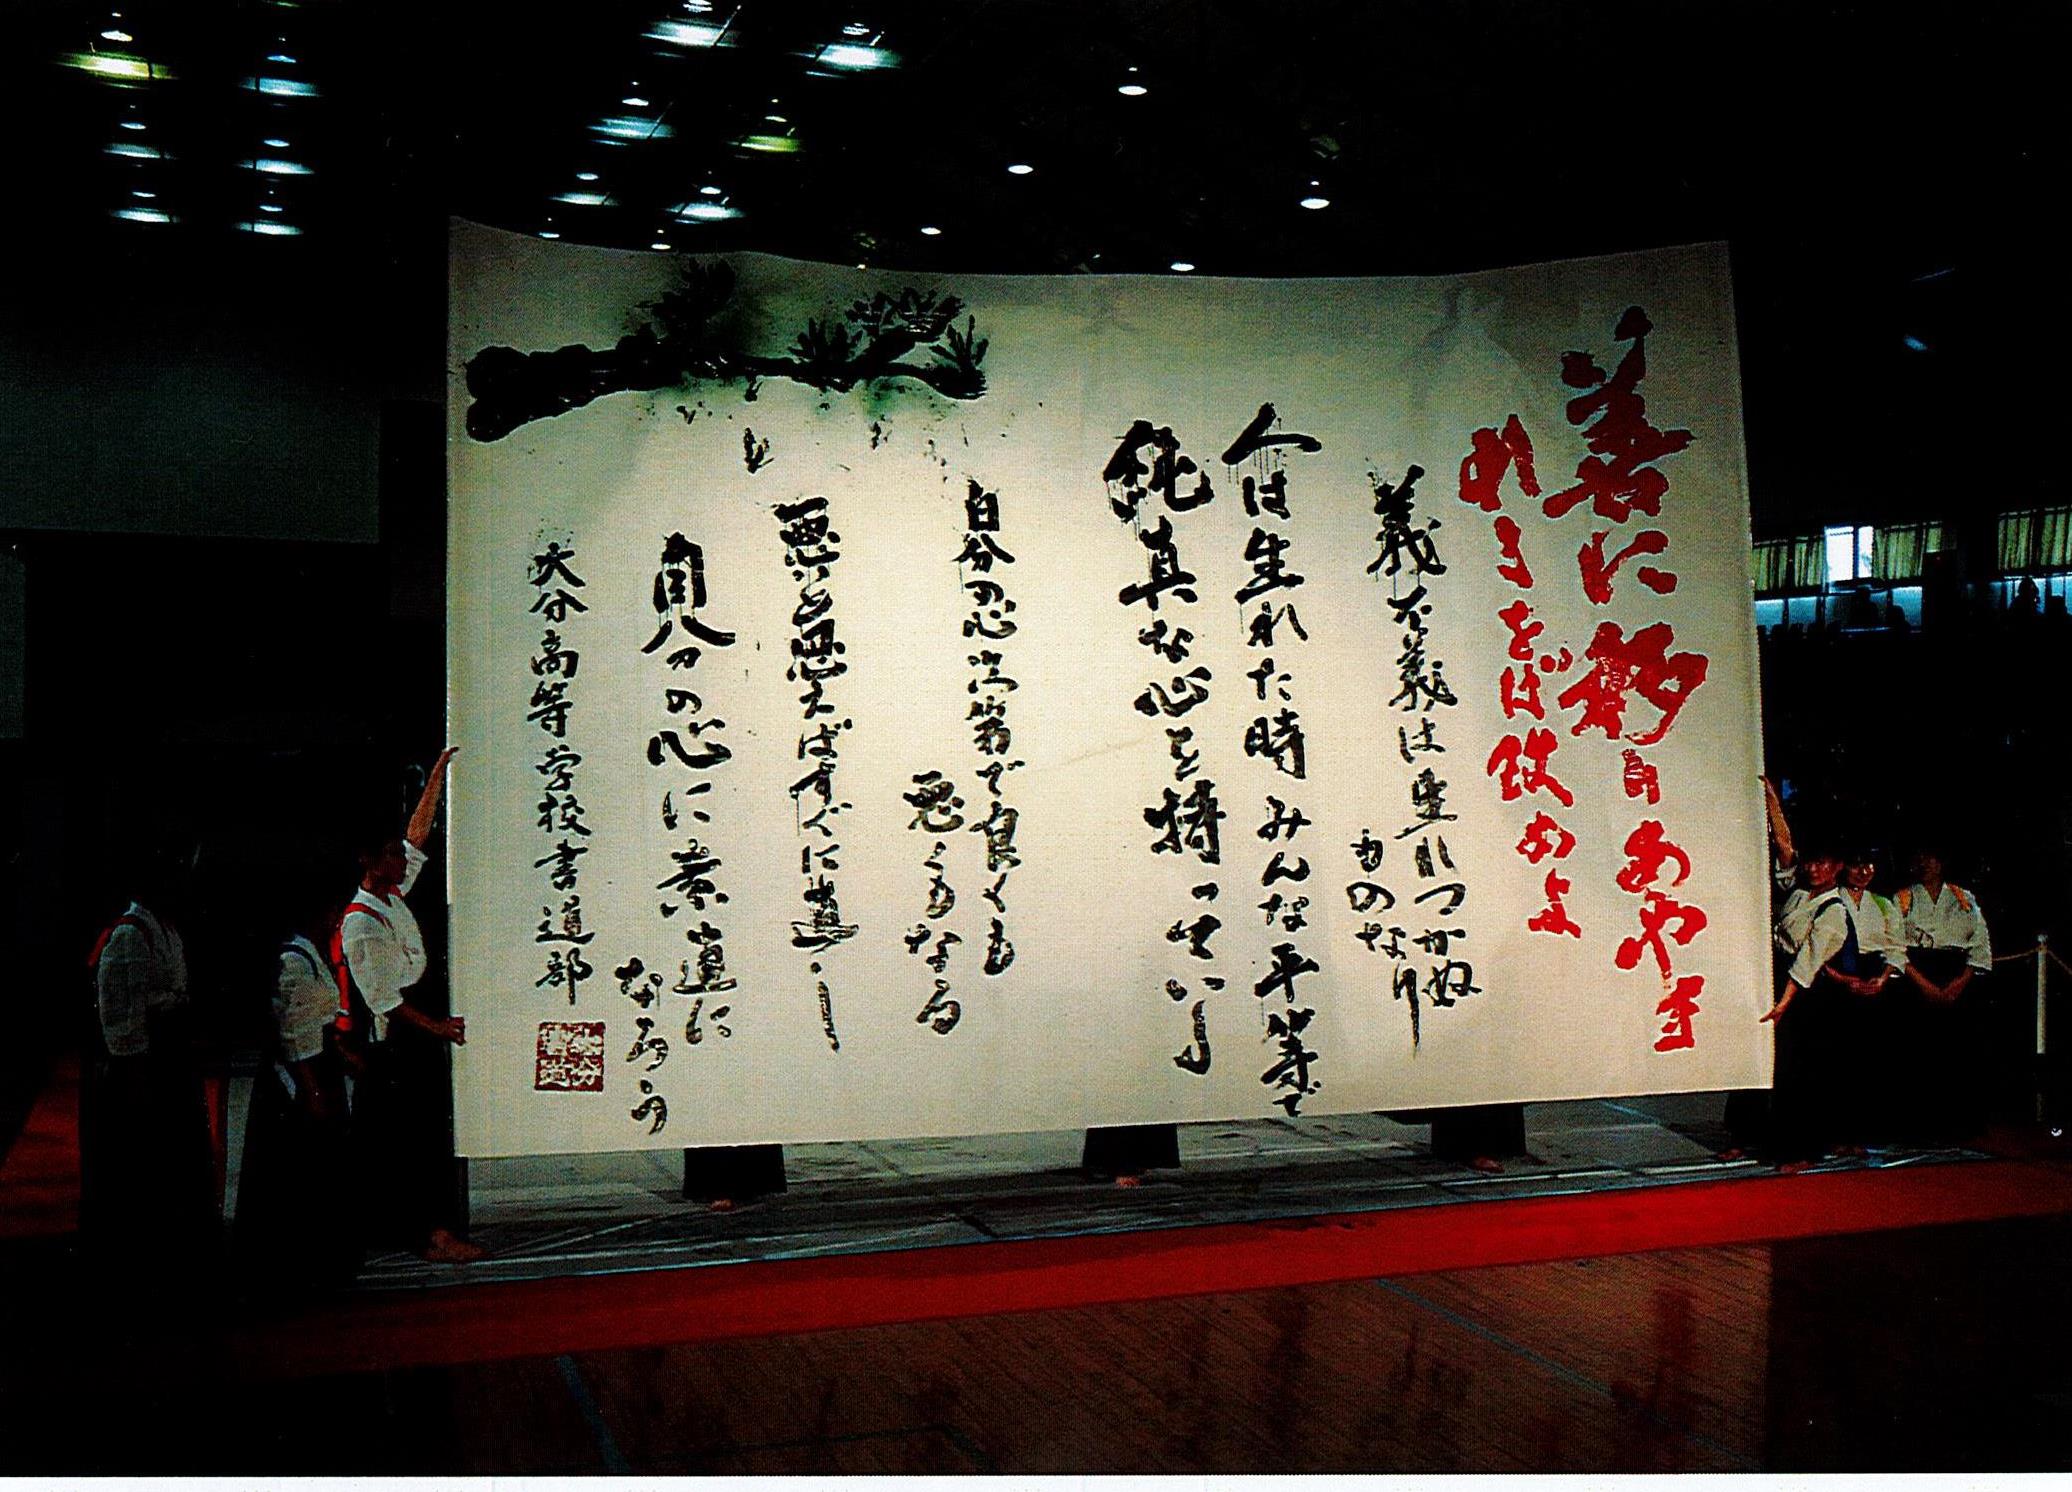 善に移りあやま
れるをば改めよ
義不義は生れつかぬ
ものなり
人は生れた時みんな平等で
純真な心を持っている
自分の心次第で良くも
悪くもなる
悪いと思えばすぐに直し
自分の心に素直に
なろう
大分高等学校書道部